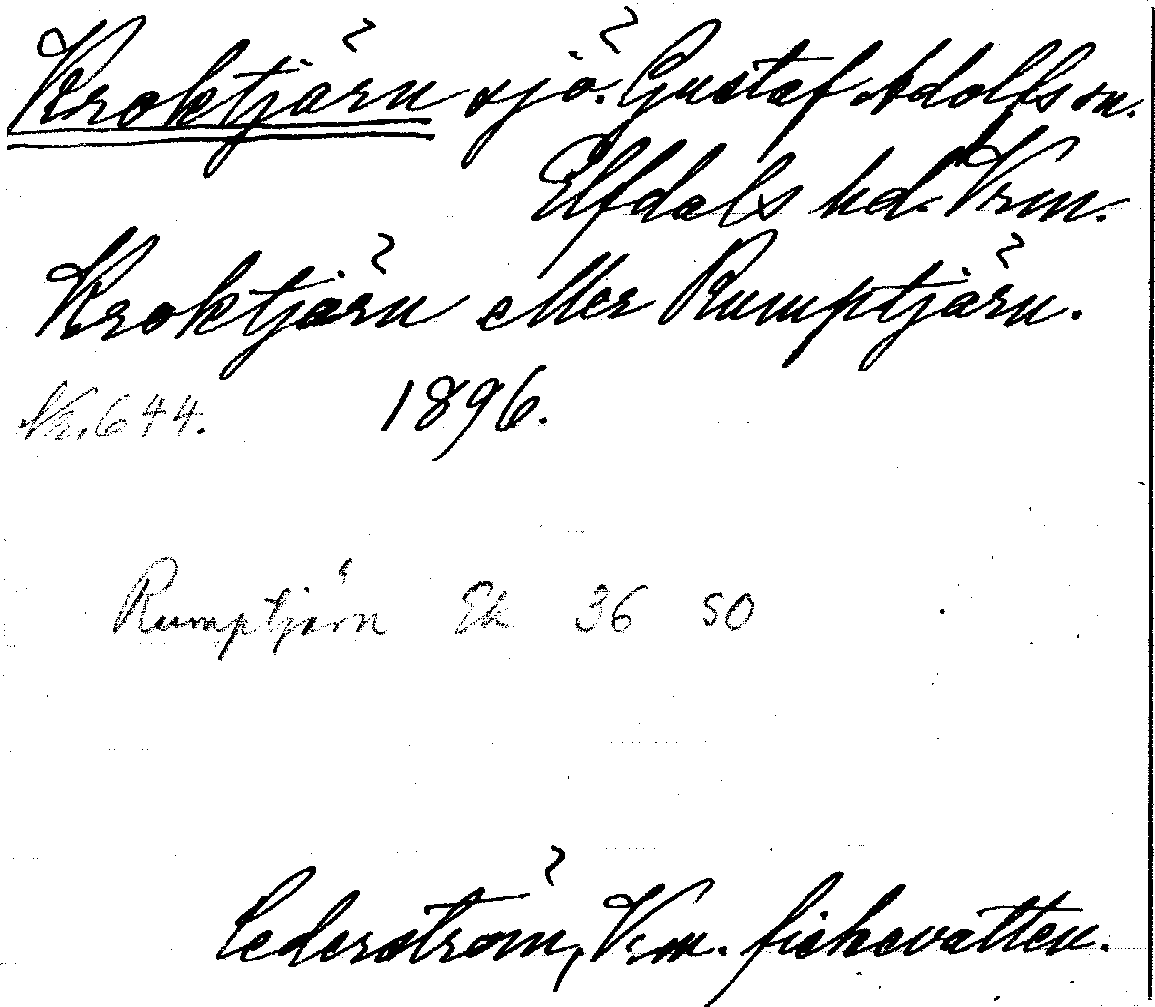 Kroktjärn sjö. Gustaf Adolfs sn.
Elfdals hd. Vrm.
Kroktjärn eller Rumptjärn.
Nr. 644. 1896.
Rumptjärn Ek 36 50
Cederström, Vrm. fiskevatten.